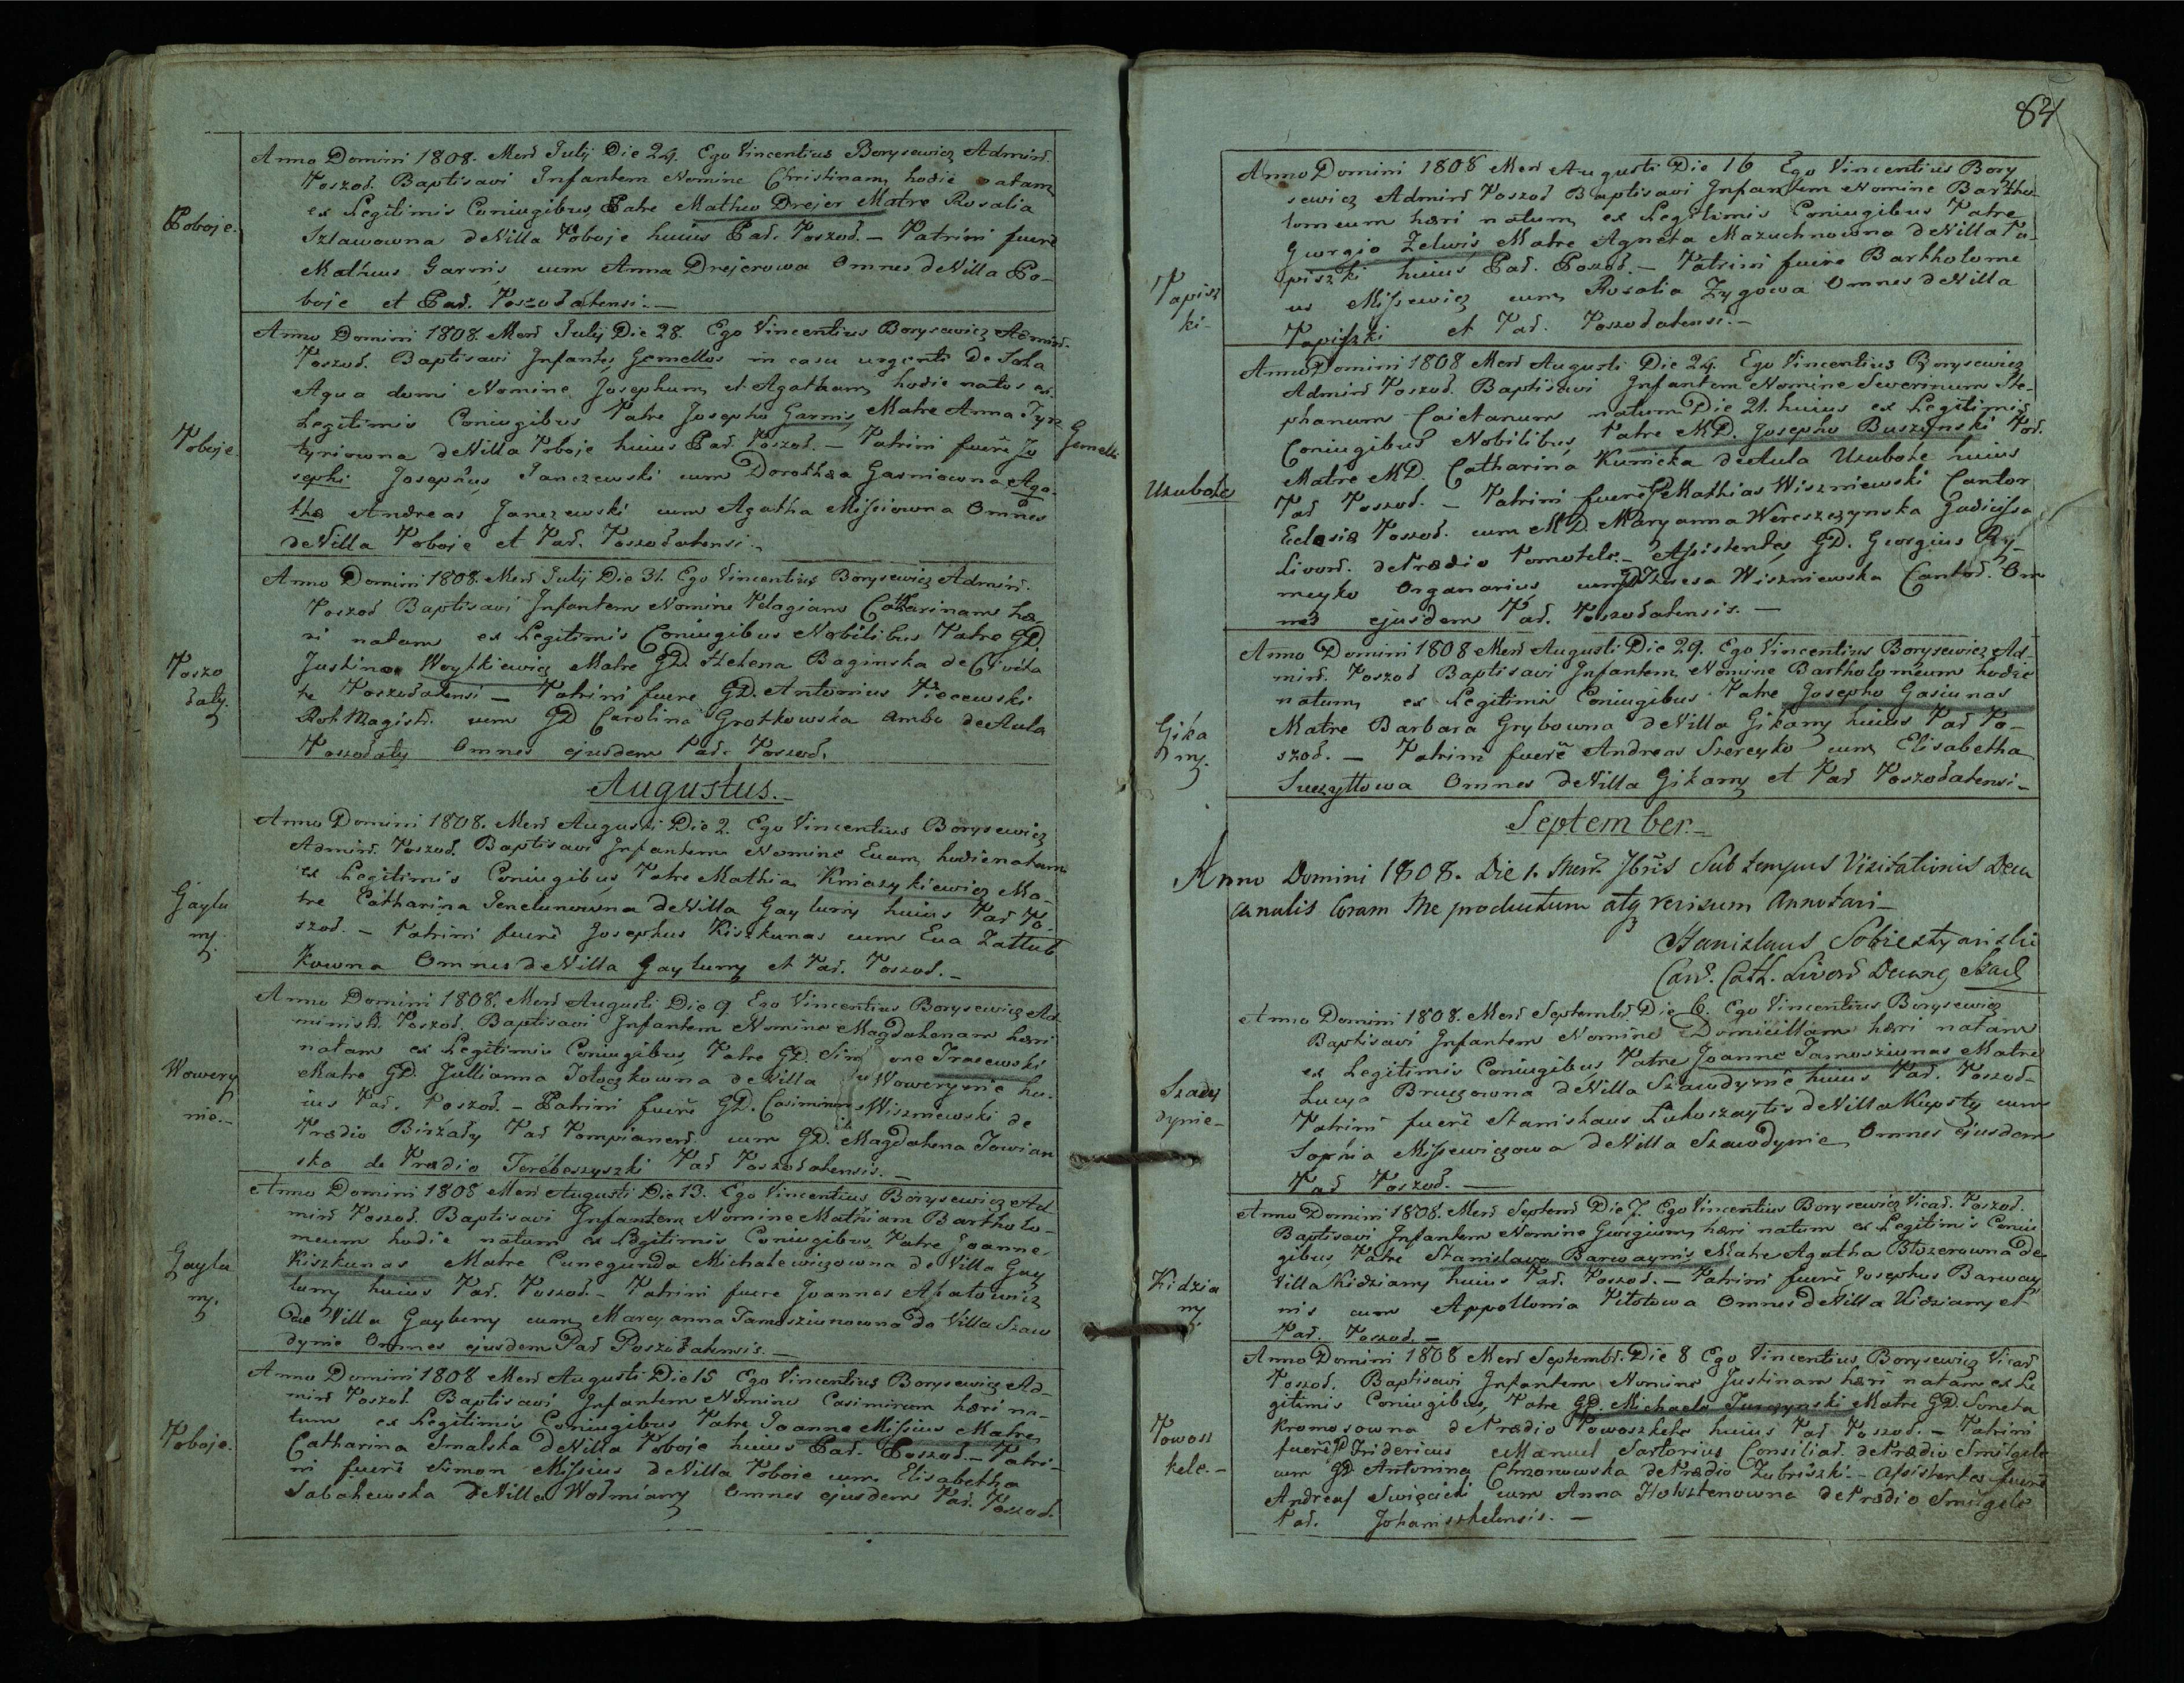 Poboje.
Anno Domini 1808. Mens Julij Die 24. Ego Vincentius Borysewicz Admin.
Poszod. Baptisavi Infantem Nomine Christinam, hodie natam
ex Legitimis Coniugibus, Patre Matheo Drejer Matre Rosalia
Szlawowna de Villa Poboje huius Par. Poszod. – Patrini fuere
Matheus Garnis cum Anna Drejerowa Omnes de Villa Po-
boje et Par. Poszodatensi. –
Poboje.
Anno Domini 1808. Mens Julij Die 28. Ego Vincentius Borysewicz Admin.
Poszod. Baptisavi Infantes Gemellos in casu urgenti de Sola
Aqua domi Nomine Josephum, et Agatham, hodie natos ex
Legitimis Coniugibus Patre Josepho Garnis Matre Anna
tyriowna de Villa Poboje huius Par. Poszod. – Patrini fuere Jo
Gemelli
sephi Josephus Janczewski cum Dorothea Garniowna, Aga-
tha Andreas Janczewski cum Agatha Missiowna Omnes
de Villa Poboje et Par. Poszodatensi. –
Poszo
daty.
Anno Domini 1808. Mens Julij Die 31. Ego Vincentius Borysewicz Admin.
Poszod Baptisavi Infantem Nomine Pelagiam Catharinam hæ-
ri natam ex Legitimis Coniugibus Nobilibus Patre GD.
Justino Woytkiewicz Matre GD. Helena Baginska de Civita
te Poszodatensi – Patrini fuere GD. Antonius Piecewski
Rot Magistr. cum GD Carolina Grotkowska Ambo de Aula
Poszodaty Omnes ejusdem Par. Poszod.
Augustus. –
Gaylu
ny.
Anno Domini 1808. Mens Augusti Die 2. Ego Vincentius Borysewicz
Admin. Poszod. Baptisavi Infantem Nomine Euam, hodie natam
ex Legitimis Coniugibus, Patre Mathia Kniazykiewicz Ma-
tre Catharina Penelunowna de Villa Gayluny huius Par Po-
szod. – Patrini fuere Josephus Kiszkunas cum Eua Zattub
kowna Omnes de Villa Gayluny et Par. Poszod. –
Wowery
nie. –
Anno Domini 1808. Mens Augusti Die 9 Ego Vincentius Borysewicz Ad-
ministr. Poszod. Baptisavi Infantem Nomine Magdalenam hæri
natam ex Legitimis Coniugibus, Patre GD. Simone Jracewski
Matre GD. Jullianna Tołoczkowna de Villa Wowerynie hu-
ius Par. Poszod. – Patrini fuere GD. Casimirus Wiszniewski de
Prædio Birżaty Par Pompianens. cum GD. Magdalena Jowian
ska de Prædio Terebeszyszki Par Poszodatensis. –
Gaylu
ny.
Anno Domini 1808 Mens Augusti Die 13. Ego Vincentius Borysewicz Ad-
min Poszod. Baptisavi Infantem, Nomine Mathiam Bartholo-
meum hodie natum ex Legitimis Coniugibus, Patre Joanne
Kiszkunas Matre Cunegunda Michalewiczowna de Villa Gay
luny huius Par. Poszod. – Patrini fuere Joannes Apatowicz
de Villa Gayluny cum Maryanna Tamosziunowna de Villa Szaw
dynie Omnes ejusdem Par Poszodatensis. –
Poboje.
Anno Domini 1808 Mens Augusti Die 15 Ego Vincentius Borysewicz Ad-
min Poszod Baptisavi Infantem Nomine Casimirum hæri na-
tum ex Legitimis Coniugibus Patre Joanne Missius Matre
Catharina Smalska de Villa Poboje huius Par. Poszod. – Patri-
ni fuere Simon Missius de Villa Poboie cum Elisabetha
Sabalewska de Villa Wołmiany Omnes ejusdem Par. Poszod.
84
Papisz
ki –
Anno Domini 1808 Mens Augusti Die 16 Ego Vincentius Bory
sewicz Admin Poszod Baptisavi Infantem Nomine Bartho-
lomeum hæri natum, ex Legitimis Coniugibus Patre
Georgio Zelwis Matre Agneta Mazuchnowna de Villa Pa-
piszki huius Par. Poszod. – Patrini fuere Bartholome
us Missewicz cum Rosalia Zygowa Omnes de Villa
Papiszki et Par. Poszodatensi. –
Uzubole
Anno Domini 1808 Mens Augusti Die 24. Ego Vincentius Borysewicz
Admin Poszod. Baptisavi Infantem Nomine Severinum Ste-
phanum Caietanum natum Die 21. huius ex Legitimis
Coniugibus Nobilibus, Patre MD. Josepho Buszynski Pod.
Matre MD. Catharina Kunicka de Aula Uzubole huius
Par Poszod. – Patrini fuere Mathias Wiszniewski Cantor
Eclesiæ Poszod. cum MD Maryanna Wereszczynska Judicissa
Livon. de Prædio Pomotele. – Assistentes GD. Georgius Ry-
meyko Organarius, cum Theresa Wiszniewska Cantor. Om
nes ejusdem Par. Poszodatensis. –
Gika
ny.
Anno Domini 1808 Mens Augusti Die 29. Ego Vincentius Borysewicz Ad-
min. Poszod Baptisavi Infantem Nomine Bartholomeum hodie
natum, ex Legitimis Coniugibus Patre Josepho Gasiunas
Matre Barbara Grybowna de Villa Gikany huius Par Po-
szod. – Patrini fuere Andreas Szereyko cum Elisabetha
Suczyttowa Omnes de Villa Gikany et Par Poszodatensi –
September. –
Anno Domini 1808. Die 1. Mens. 7bris Sub tempus Visitationis Deca
canalis Coram Me productum atq revisum Annotavi –
Stanislaus Sobiestyanski
Can. Cath. Livon Decanq
Szawdy
dynie –
Anno Domini 1808. Mens Septembr. Die 6. Ego Vincentius Borysewicz
Baptisavi Infantem Nomine Domicillam hæri natam
ex Legitimis Coniugibus Patre Joanne Tamosziunas Matre
Lucya Bruzowna de Villa Szawdynie huius Par. Poszod –
Patrini fuere Stanislaus Lukoszaytis de Villa Kupsty cum
Sophia Missewiczowa de Villa Szawdynie Omnes ejusdem
Par Poszod. –
Kidzia
ny.
Anno Domini 1808. Mens Septemb Die 7. Ego Vincentius Borysewicz Vicar. Poszod.
Baptisavi Infantem Nomine Georgium, hæri natum ex Legitimis Coniu
gibus, Patre Stanislawo Barwaynis Matre Agatha Blozerowna de
Villa Kidziany huius Par. Poszod. – Patrini fuere Josephus Barway
nis cum Appollonia Pitotowa Omnes de Villa Kidziany et
Par. Poszod. –
Powosz
kele. –
Anno Domini 1808 Mens Septembr. Die 8 Ego Vincentius Borysewicz Vicar
Poszod. Baptisavi Infantem Nomine Justinam hæri natam ex Le
gitimis Coniugibus, Patre GD. Michaele Juszynski Matre GD. Soneta
Kromosowna de Prædio Powoszkele huius Par. Poszod. – Patrini
fuere Fridericus Manuel Sartorius Consiliar. de Prædio Smilgele
cum GD. Antonina Chmonowska de Prædio Zubiszki. – Assistentes fuere
Andreas Swięcicki cum Anna Holsztenowna de Prædio Smilgele
Par. Johaniszkelensis. –